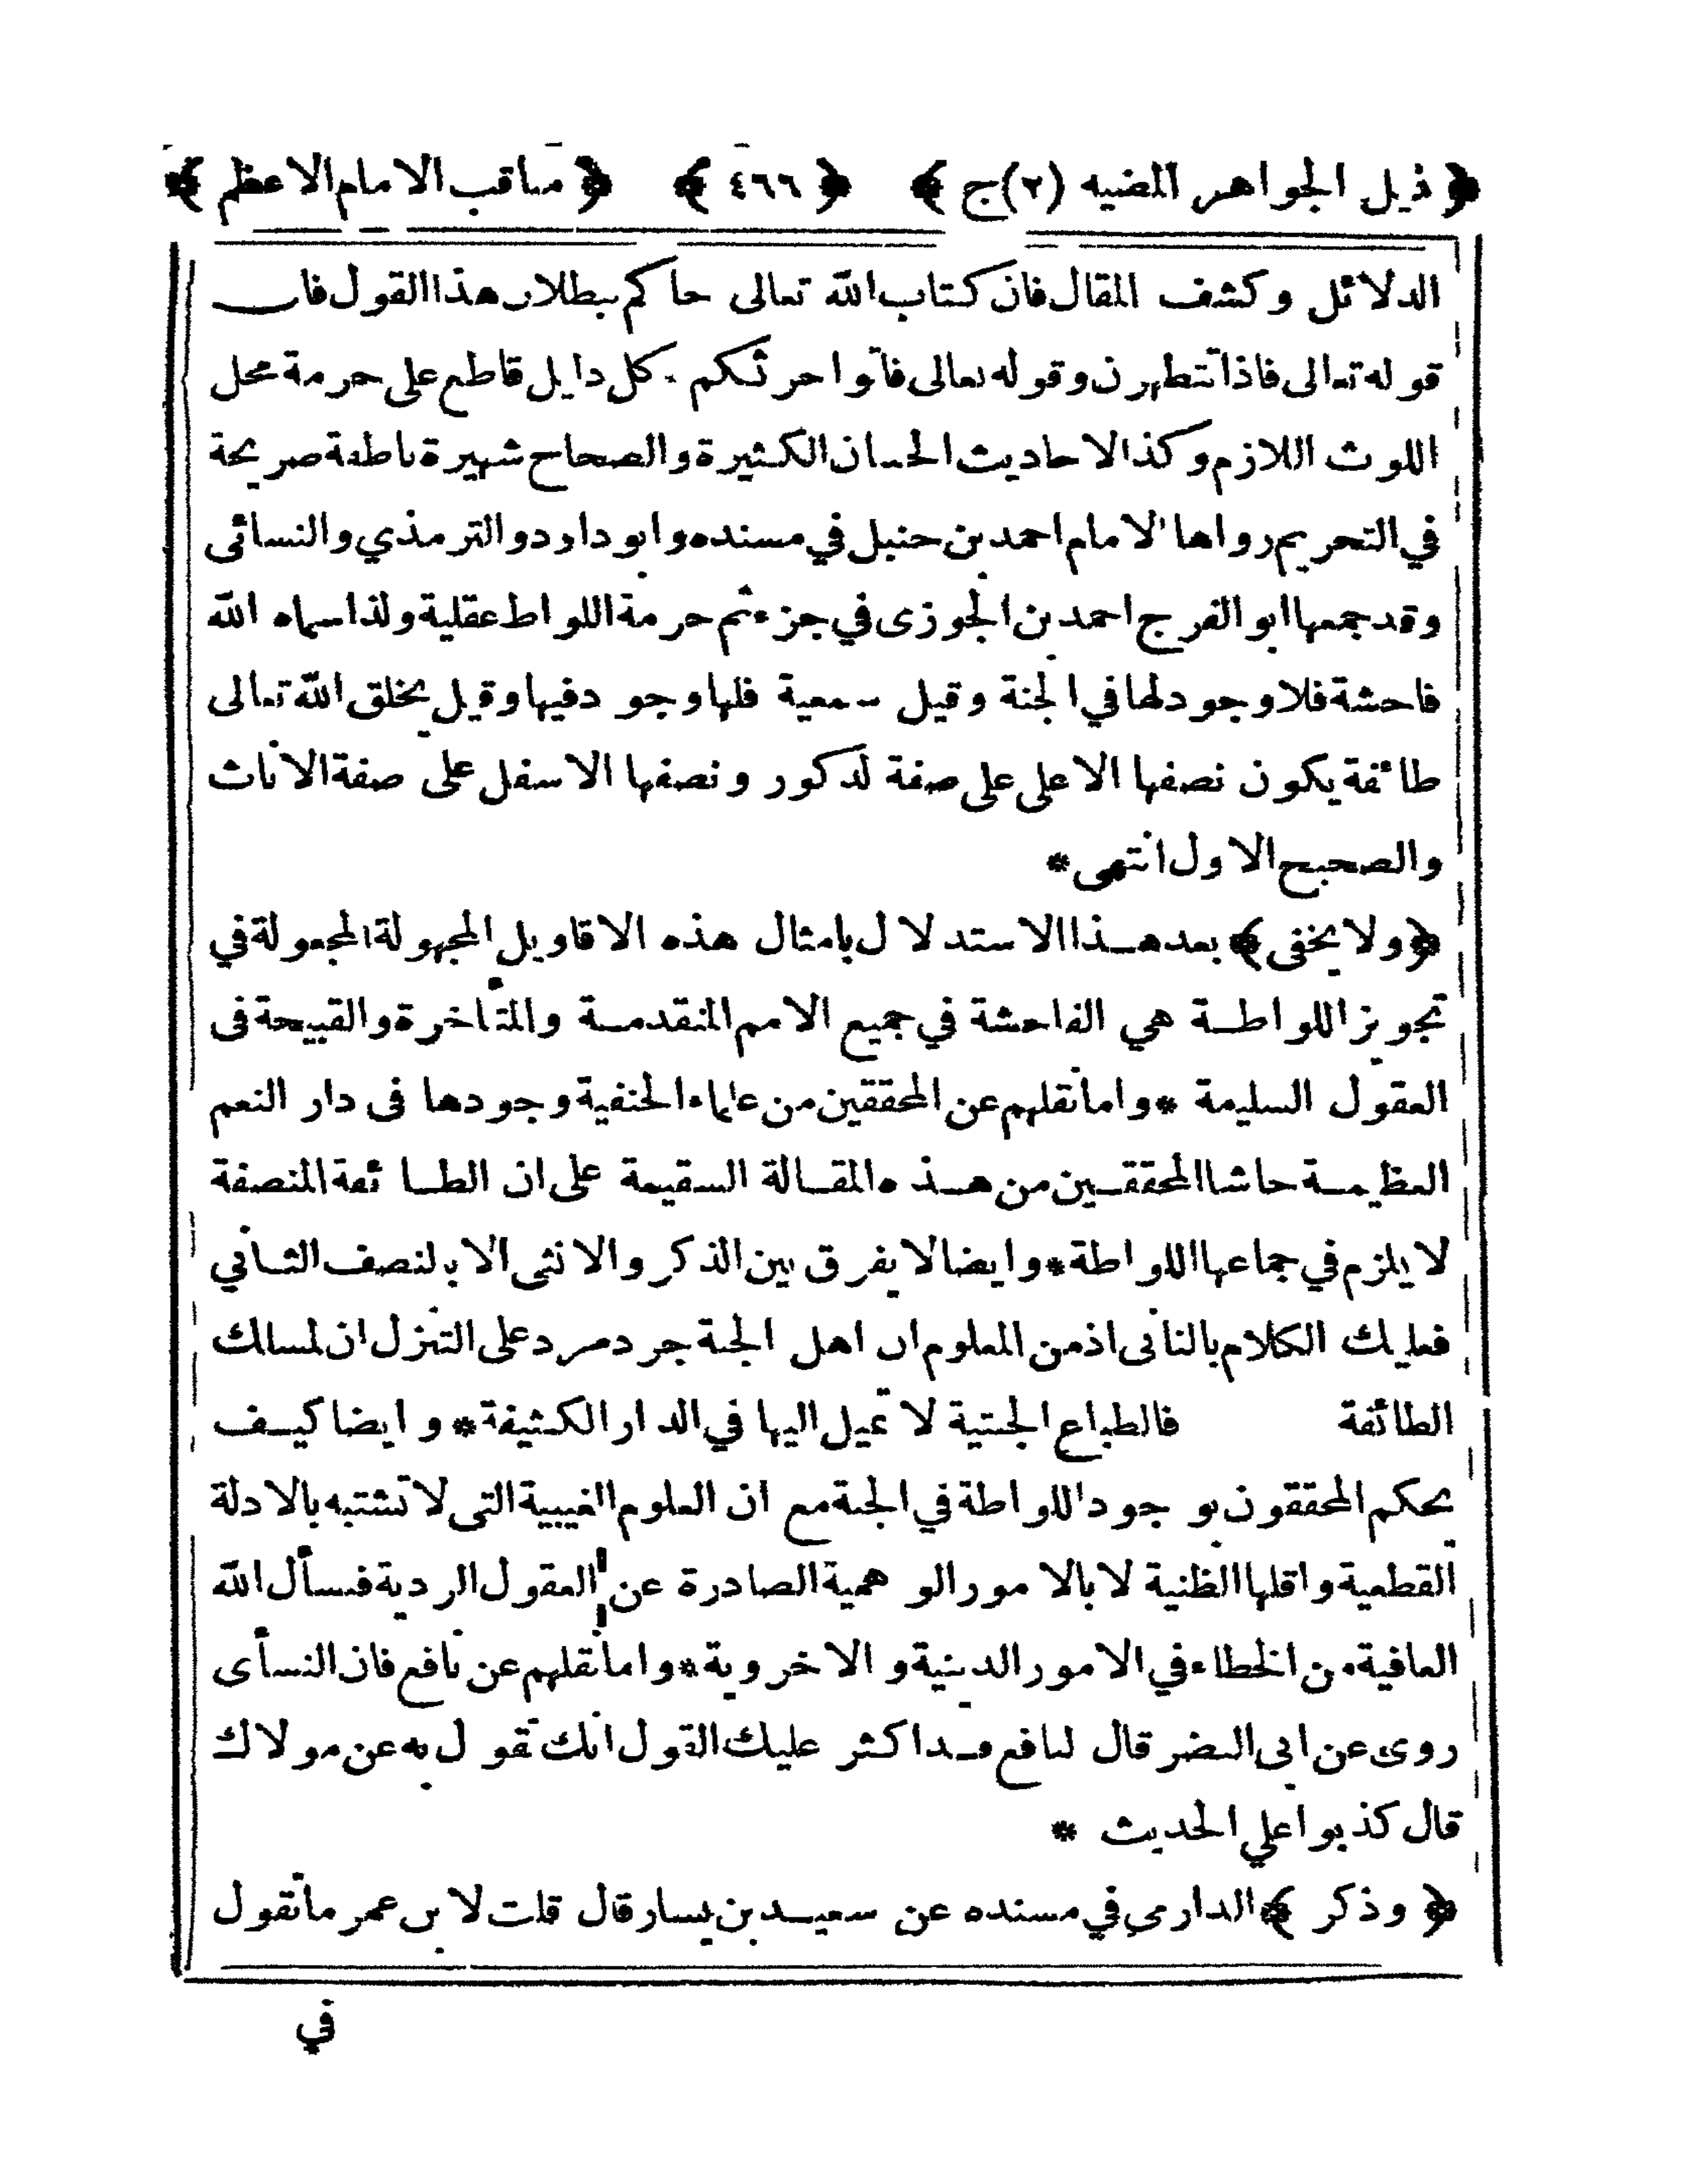 ﴿ ذيل الجواهر المضيه (٢)ج ﴾ ﴿ ٤٦٦ ﴾ ﴿ مناقب الامام الاعظم ﴾
الدلائل وكشف المقال فان كتاب الله تعالى حاكم ببطلان هذا القول فان
قوله تعالى فاذا تتطهرن وقوله تعالى فأتوا حرثكم . كل دليل قاطع على حرمة محل
اللوث اللازم وكذا الاحاديث الحسان الكثيرة والصحاح شهيرة ناطقة صريحة
في التحريم رواها الامام احمد بن حنبل في مسنده وابو داود والترمذي والنسائى
وقد جمعها ابو الفرج احمد بن الجوزى في جزء ثم حرمة اللواط عقلية ولذا سماه الله
فاحشة فلا وجود لها في الجنة وقيل سمعية فلها وجود فيها وقيل يخلق الله تعالى
طائفة يكون نصفها الاعلى على صفة لذكور ونصفها الاسفل على صفة الاناث
والصحيح الاول انتهى *
﴿ ولا يخفى ﴾ بعد هذا الاستدلال بامثال هذه الاقاويل المجهولة المجعولة في
تجويز اللواطة هي الفاحشة في جميع الامم المتقدمة والمتأخرة والقبيحة فى
العقول السليمة * واما نقلهم عن المحققين من علماء الحنفية وجودها فى دار النعم
العظيمة حاشا المحققين من هذه المقالة السقيمة على ان الطائفة المنصفة
لا يلزم في جماعها اللواطة * وايضا لا يفرق بين الذكر والانثى الا بالنصف الثاني
فعليك الكلام بالتانى اذ من المعلوم ان اهل الجنة جرد مرد على التنزل ان لمسالك
الطائفة فالطباع الجنتية لا تميل اليها في الدار الكثيفة * وايضا كيف
يحكم المحققون بوجود اللواطة في الجنة مع ان العلوم الغيبية التى لا تشتبه بالادلة
القطعية واقلها الظنية لا بالامور الوهمية الصادرة عن العقول الردية فسأل الله
العافية من الخطاء في الامور الدينية والاخروية * واما نقلهم عن نافع فان النسأى
روى عن ابى النضر قال لنافع قد اكثر عليك القول انك تقول به عن مولاك
قال كذبوا علي الحديث *
﴿ وذكر ﴾ الدارمي في مسنده عن سعيد بن يسار قال قلت لابن عمر ما تقول
في